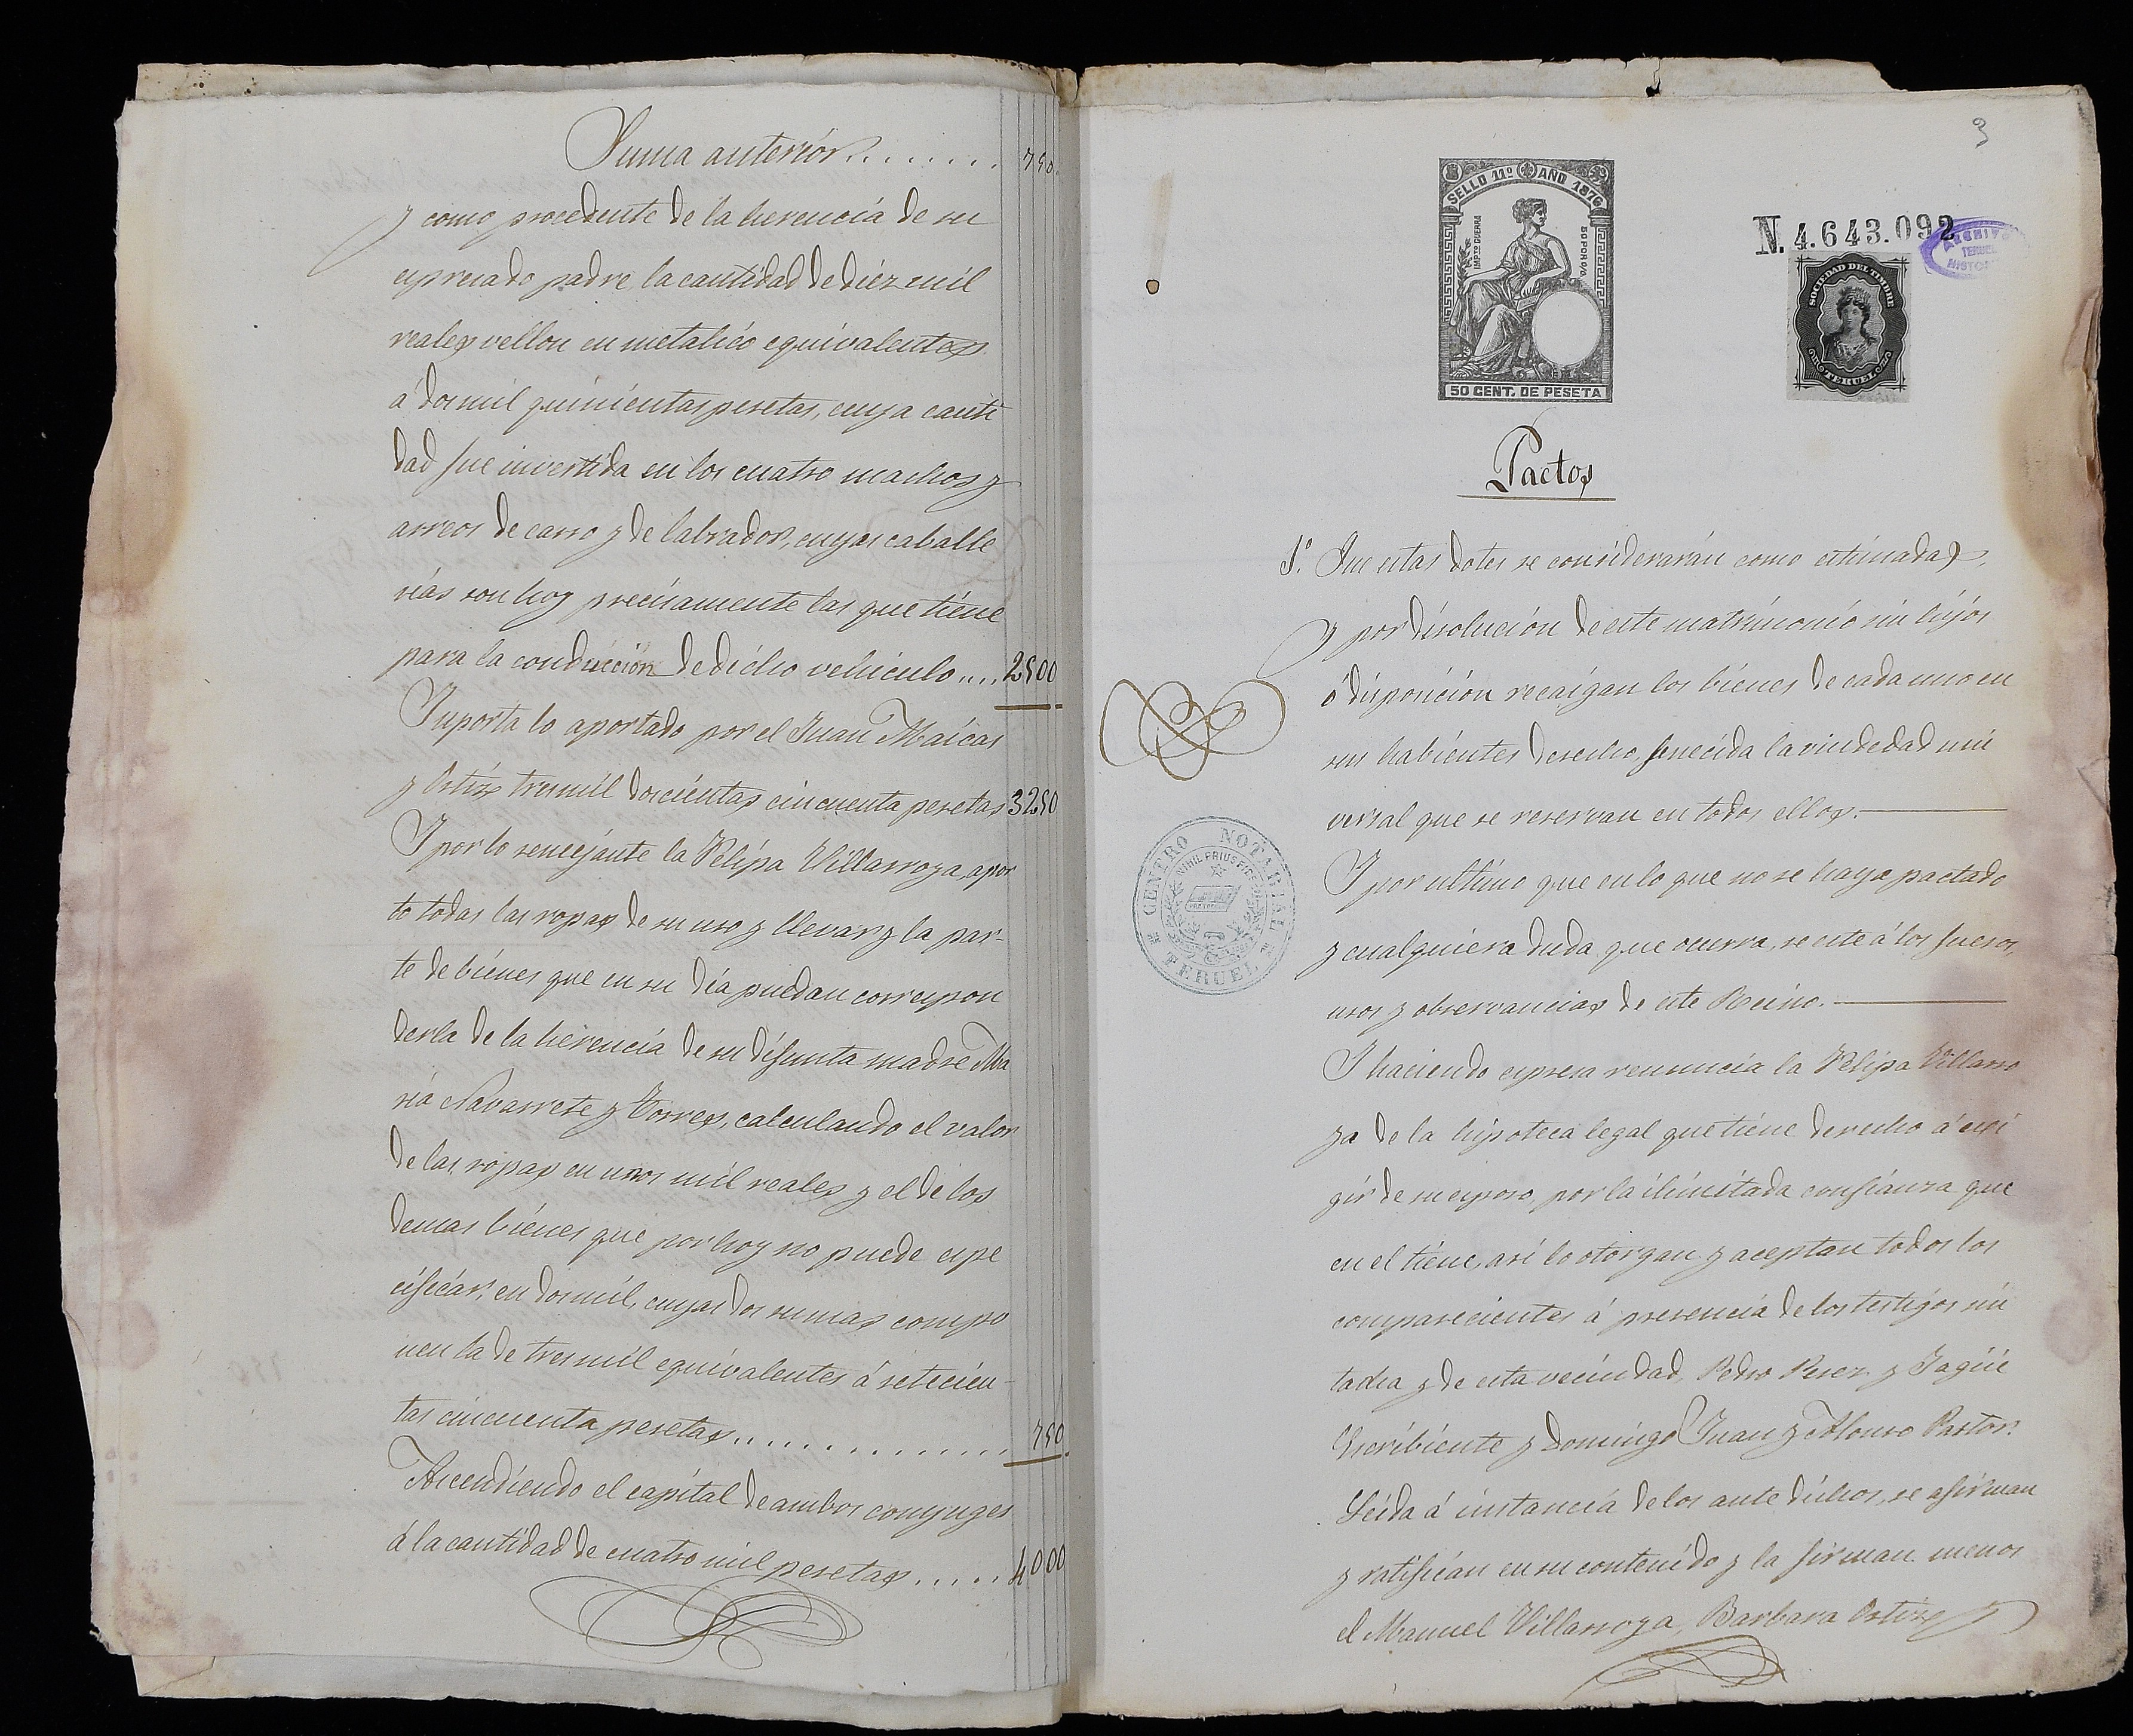 Suma anterior........ 750.
y como procedente de la herencia de su
espresado padre la cantidad de diez mil
reales vellon en metalico equivalentes
á dos mil quinientas pesetas, cuya canti
dad fue invertida en los cuatro machos y
arreos de carro y de labrador, cuyas caballe
rias son hoy precisamente las que tiene
para la conducción de dicho vehiculo.... 2500
Inporta lo aportado por el Juan Maicas
y Ortiz tres mil doscientas cincuenta pesetas 3250
I por lo semejante la Felipa Villarroya, apor
to todas las ropas de su uso y llevar y la par-
te de bienes que en su dia puedan correspon
derla de la herencia de su difunta madre Ma
ria Navarrete y Torres, calculando el valor
de las ropas en unos mil reales y el de los
demas bienes que por hoy no puede espe
cificar, en dos mil, cuyas dos sumas compo
nen la de tres mil equivalentes á setecien-
tas cincuenta pesetas............... 750.
Ascendiendo el capital de ambos conyuges
á la cantidad de cuatro mil pesetas..... 4000
3
SELLO 11º AÑO 1876
IMPTO GUERRA
50 POR 0/0
50 CENT. DE PESETA
N. 4.643.092
ARCHIVO
TERUEL
SOCIEDAD DEL TIMBRE
TERUEL
Pactos
1º. Que estas dotes se considerarán como estimadas,
y por disolución de este matrimonio sin hijos
ó disposición recaigan los bienes de cada uno en
sus habientes derecho, fenecida la viudedad uni
versal que se reservan en todos ellos.
I por ultimo que en lo que no se haya pactado
y cualquiera duda que ocurra, se este á los fueros,
usos y observancias de este Reino.
I haciendo espresa renuncia la Felipa Villarro
ya de la hipoteca legal que tiene derecho á exi
gir de su esposo, por la ilimitada confianza que
en el tiene, asi lo otorgan y aceptan todos los
comparecientes á presencia de los testigos sin
tacha y de esta vecindad, Pedro Perez y Yagüe
Escribiente y Domingo Juan y Alonso Pastor.
Leida á instancia de los ante dichos, se afirman
y ratifican en su contenido y la firman menos
el Manuel Villarroya, Barbara Ortiz y
CENTRO NOTARIAL
NIHIL PRIUS FIDE
TERUEL